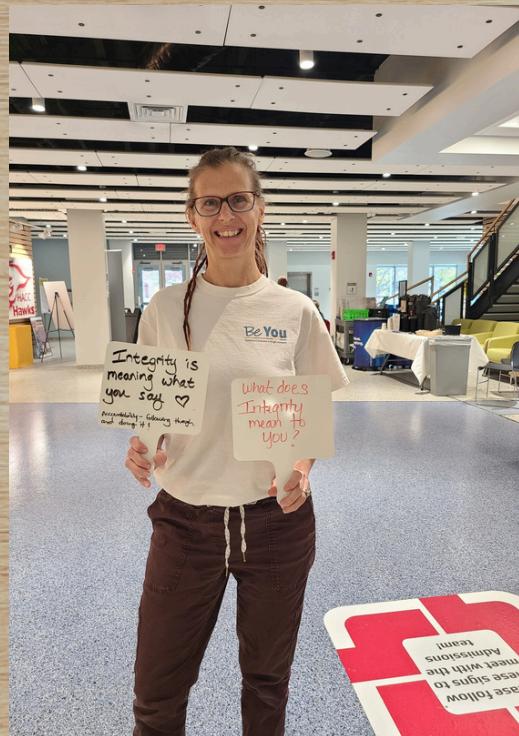 HACC
Hawks
Be You
Integrity is
meaning what
you say ♡
Accountability - following
and doing it!
What does
Integrity
mean to
you?
ase follow
ese signs to
meet with the
Admissions
team!